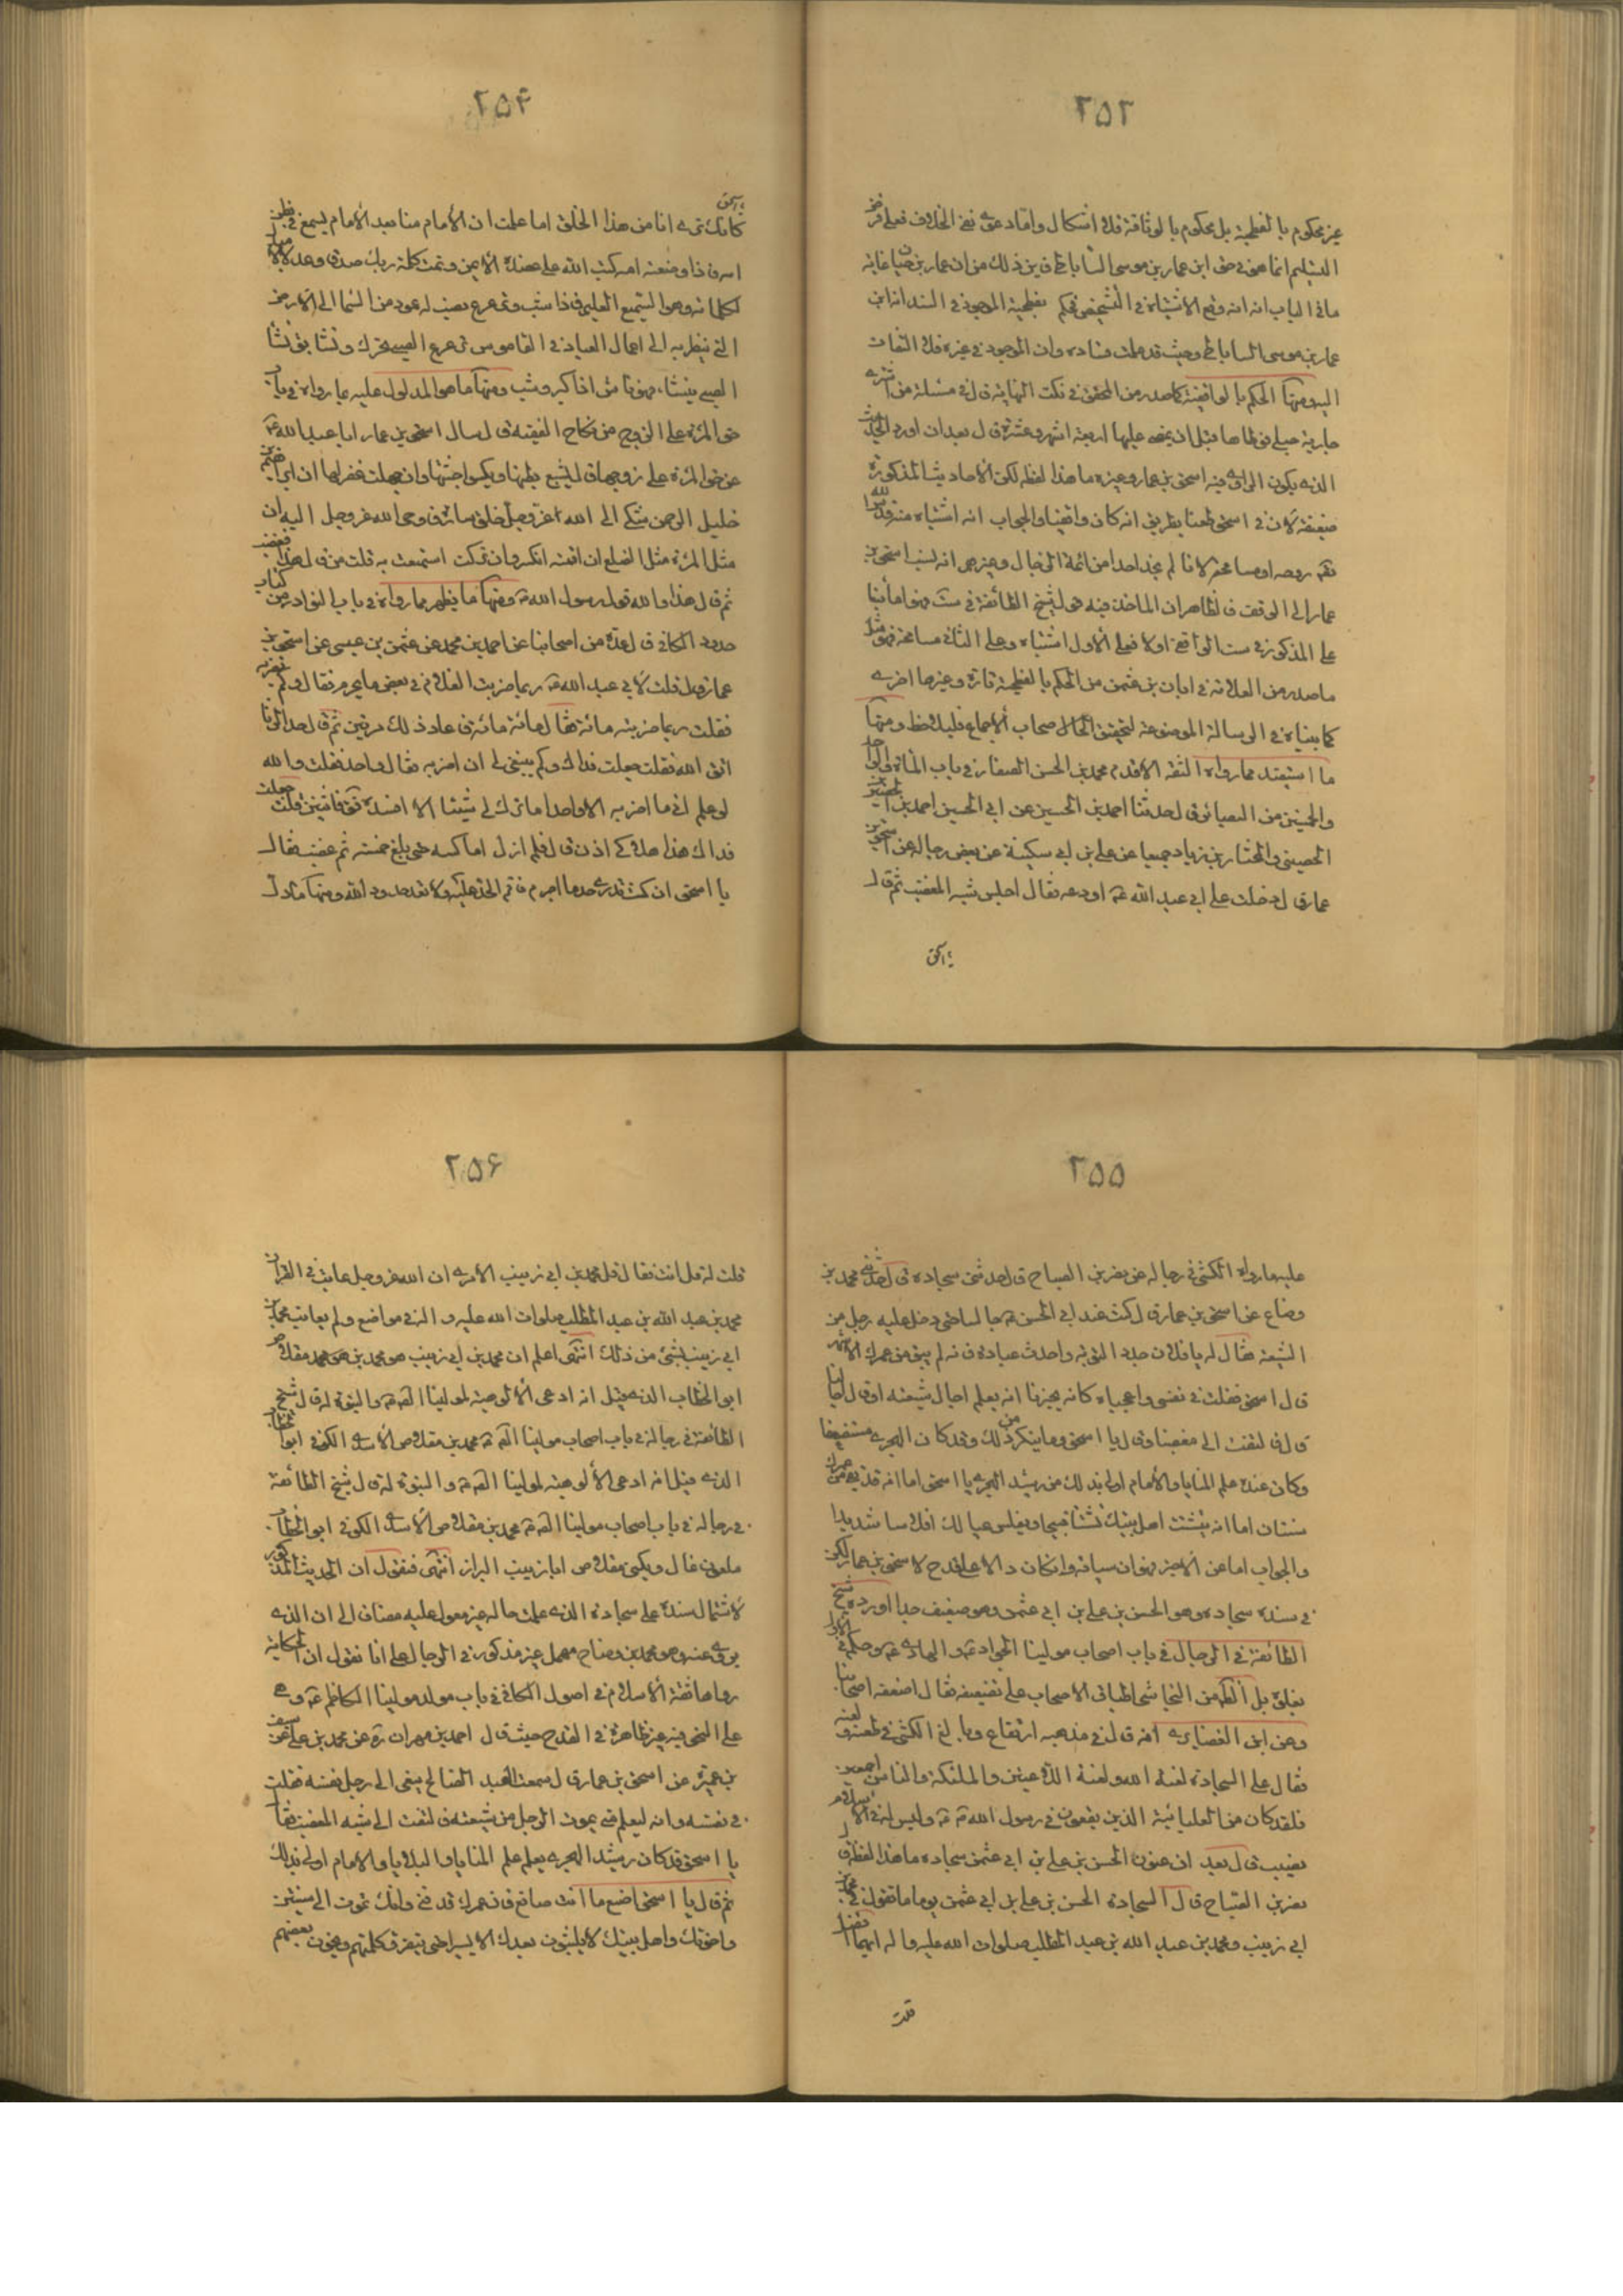 ٢٥٣
غير محكوم بالفطحية بل محكوم بالوثاقة فلا اشكال واما دعوى نفى الخلاف فعلى فرض
التسليم انما هو فى حق ابن عمار بن موسى الساباطى فان عمار بن حيان غاية
ما فى الباب انه وقع الاشتباه فى الشخص فحكم بفطحية الموجود فى السند انه ابن
عمار بن موسى الساباطى وحيث قد علمت فساده وان الموجود فى غيره فلا التفات
اليه ومنها الحكم بالواقفية كما صدر من المحقق فى نكت النهاية قال فى مسئلة من اشترى
جارية حبلى فوطئها قبل ان يمضى عليها اربعة اشهر وعشرة قال بعد ان اورد الحديث
الذى يكون الراوى فيه اسحق بن عمار وغيره ما هذا لفظه لكن الاحاديث المذكورة
ضعيفة لان فى اسحق طعنا بطريق انه كان واقفيا والجواب انه اشتباه منه قدس الله
روحه او مسامحة لانا لم نجد احدا من ائمة الرجال وغيرهم انه نسب اسحق بن
عمار الى الوقف فالظاهر ان الماخذ فيه هو لشيخ الطائفة فى ست وهو اما بنا
على المذكور فى ست الواقفى او لا فعلى الاول اشتباه وعلى الثانى مسامحة فهو مثل
ما صدر من العلامة فى ابان بن عثمن من الحكم بالفطحية تارة وغيرها اخرى
كما بيناه فى الرسالة الموضوعة لتحقيق الحال اصحاب الاجماع فليلاحظ ومنها
ما استفيد مما رواه الثقة الاقدم محمد بن الحسن الصفار فى باب المائة والواحد
والخمسين من البصائر قال حدثنا احمد بن الحسين عن ابى الحسين احمد بن الحصين
الحصينى والمختار بن زياد جميعا عن على بن ابى سكينة عن بعض رجاله عن اسحق بن
عمار قال دخلت على ابى عبد الله ع اودعه فقال اجلس شبه المغضب ثم قال
يا اسحق
٢٥۴
يا اسحق
كانك ترى انا من هذا الخلق اما علمت ان الامام منا بعد الامام يسمع فى بطن
امه فاذا وضعته امه كتب الله على عضده الايمن وتمت كلمة ربك صدقا وعدلا لا مبدل
لكلماته وهو السميع العليم فاذا شب وترعرع نصب له عمود من السما الى الارض
التى ينظر به الى اعمال العباد فى القاموس ترعرع الصبى تحرك ونشا بق نشا
الصبى ينشا، فهو ناشئ اذا كبر وشب ومنها ما هو المدلول عليه بما رواه فى باب
حق المرئة على الزوج من نكاح الفقيه قال سال اسحق بن عمار ابا عبد الله ع
عن حق المرئة على زوجها قال يشبع بطنها ويكسو جثتها وان جهلت غفر لها ان ابراهيم
خليل الرحمن شكى الى الله عز وجل خلق سارة فاوحى الله عز وجل اليه ان
مثل المرئة مثل الضلع ان اقمته انكسر وان تركته استمتعت به قلت من قال هذا فغضب
ثم قال هذا والله قول رسول الله ص ومنها ما يظهر مما رواه فى باب النوادر من كتاب
حدود الكافى قال عدة من اصحابنا عن احمد بن محمد عن عثمن بن عيسى عن اسحق بن
عمار قال قلت لابى عبد الله ع ربما ضربت الغلام فى بعض ما يجرم فقال وكم تضربه
فقلت ربما ضربته مائة فقال مائة مائة فاعاد ذلك مرتين ثم قال حد الزنا
اتق الله فقلت جعلت فداك وكم ينبغى لى ان اضربه فقال واحد فقلت والله
لو علم انى ما اضربه الا واحدا ما ترك لى شيئا الا افسده فقال فاثنين فقلت جعلت
فداك هذا هلاكى اذن قال فلم ازل اماكسه حتى بلغ خمسة ثم غضب فقال
يا اسحق ان كنت تدرى حد ما اجرم فاقم الحد عليه ولا تعد حدود الله ومنها ما دل
٢٥٥
عليه ما رواه الكشى فى رجاله عن نصر بن الصباح قال حدثنى سجادة قال حدثنى محمد بن
وضاح عن اسحق بن عمار قال كنت عند ابى الحسن ع جالسا حتى دخل عليه رجل من
الشيعة فقال له يا فلان جدد التوبة واحدث عبادة فانه لم يبق من عمرك الا شهر
قال اسحق فقلت فى نفسى واعجباه كانه يخبرنا انه يعلم اجال شيعته او قال اجالنا
قال فالتفت الى مغضبا وقال يا اسحق وما ينكر من ذلك وقد كان الهجرى مستضعفا
وكان عنده علم المنايا والامام اولى بذلك من رشيد الهجرى يا اسحق اما انه قد بقى من عمرك
سنتان اما انه يتشتت اهل بيتك تشتتا قبيحا ويفلس عيالك افلاسا شديدا
والجواب اما عن الاخير فهو ان سياقه وان كان دالا على قدح لاسحق بن عمار لكن
فى سنده سجادة وهو الحسن بن على بن ابى عثمن وهو ضعيف جدا اورده شيخ
الطائفة فى الرجال فى باب اصحاب مولينا الجواد ع والهادى ع وحكم فى الاول
بغلوه بل الظاهر من النجاشى اطباق الاصحاب على تضعيفه فقال اضعفه اصحابنا
وعن ابن الغضايرى انه قال فى مذهبه ارتفاع وبالغ الكشى فى طعنه ولعنه
فقال على السجادة لعنة الله ولعنة اللاعنين والملئكة والناس اجمعين
فلقد كان من العليائية الذين يقعون فى رسول الله ص وليس له فى الاسلام
نصيب قال بعد ان عنون الحسن بن على بن ابى عثمن سجادة ما هذا لفظه قال
نصر بن الصباح قال السجادة الحسن بن على بن ابى عثمن يوما ما تقول فى محمد بن
ابى زينب ومحمد بن عبد الله بن عبد المطلب صلوات الله عليه واله ايهما افضل
قلت
٢٥۶
قلت له قل انت فقال قل محمد بن ابى زينب الا ترى ان الله عز وجل عاتب فى القران
محمد بن عبد الله بن عبد المطلب صلوات الله عليه واله فى مواضع ولم يعاتب محمد بن
ابى زينب بشئ من ذلك انتهى اعلم ان محمد بن ابى زينب هو محمد بن مقلاص
ابو الخطاب الذى قيل انه ادعى الالوهية لمولينا الصادق ع والنبوة له قال شيخ
الطائفة فى رجاله فى باب اصحاب مولينا الصادق ع محمد بن مقلاص الاسدى الكوفى ابو الخطاب
الذى قيل انه ادعى الالوهية لمولينا الصادق ع والنبوة له قال شيخ الطائفة
فى رجاله فى باب اصحاب مولينا الصادق ع محمد بن مقلاص الاسدى الكوفى ابو الخطاب
ملعون غال ويكنى مقلاص ابا زينب البزاز انتهى فنقول ان الحديث المذكور
لاشتمال سنده على سجادة الذى علمت حاله غير معول عليه مضافا الى ان الذى
روى عنه وهو محمد بن وضاح مهمل غير مذكور فى الرجال على انا نقول ان الحكاية
رواها ثقة الاسلام فى اصول الكافى فى باب مولد مولينا الكاظم ع وهى
على النحو فيه غير ظاهرة فى القدح حيث قال احمد بن مهران ره عن محمد بن على عن سيف
بن عميرة عن اسحق بن عمار قال سمعت العبد الصالح ينعى الى رجل نفسه فقلت
فى نفسى وانه ليعلم متى يموت الرجل من شيعته فالتفت الى شبه المغضب فقال
يا اسحق قد كان رشيد الهجرى يعلم علم المنايا والبلايا والامام اولى بذلك
ثم قال يا اسحق اصنع ما انت صانع فان عمرك قد فنى وانك تموت الى سنتين
واخوتك واهل بيتك لا يلبثون بعدك الا يسيرا حتى تتفرق كلمتهم ويخون بعضهم